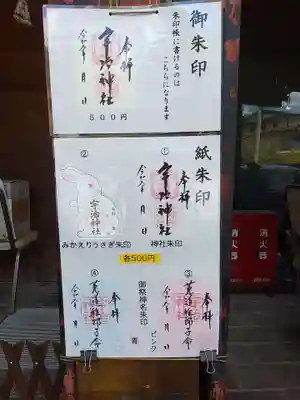 御朱印
朱印帳に書けるのは
こちらになります
奉拝
宇治神社
令和 年 月 日
500円
紙朱印
①
奉拝
宇治神社
令和 年 月 日
神社朱印
②
宇治神社
みかえりうさぎ朱印
各500円
③
奉拝
菟道稚郎子命
令和 年 月 日
ピンク
御祭神名朱印
青
④
奉拝
菟道稚郎子命
令和 年 月 日
消火器
消火器